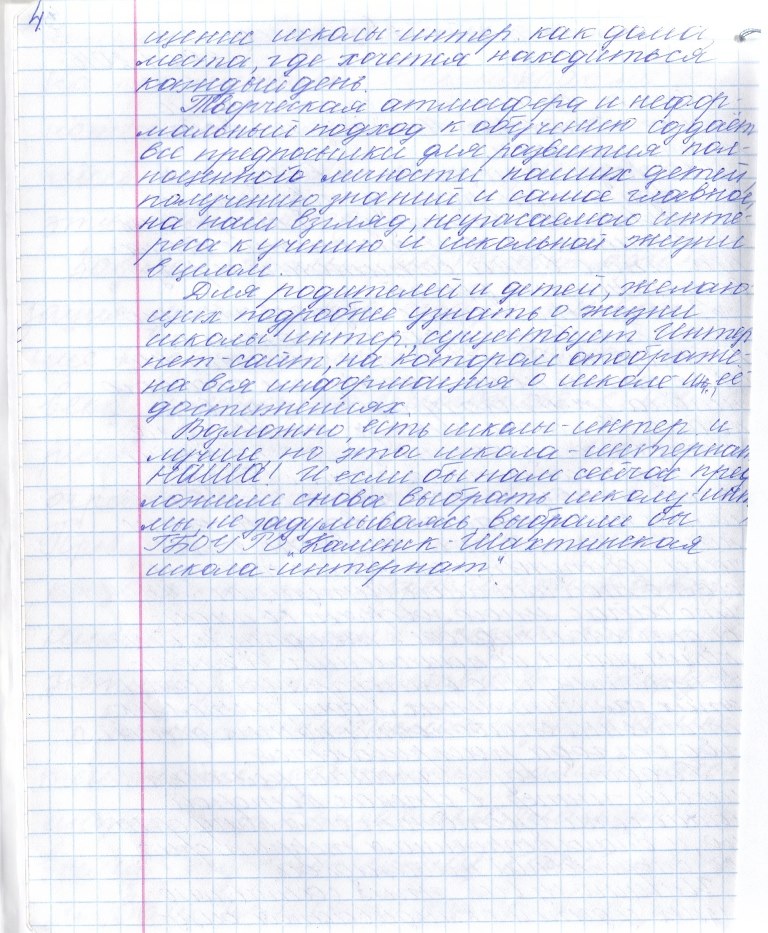 4
щение школы-интер. как дома,
места, где хочется находиться
каждый день.
Творческая атмасфера и нефор-
мальный подход к обучению создаёт
все предпосылки для развития пол-
ноценного личности наших детей,
получению знаний и самое главное,
на наш взгляд, неугасаемого инте-
реса к учению и школьной жизни
в целом.
Для родителей и детей, желаю-
щих подробнее узнать о жизни
школы-интер, существует интер
нет-сайт, на котором отображе-
на вся информация о школе-и, ее
достижениях.
Возможно, есть школы-интер и
лучше, но эта школа-интернат
НАША! И если бы нам сейчас пред
ложили снова выбрать школу-инт
мы, не задумываясь, выбрали бы
ГБОУ РО "Каменск-Шахтинская
школа-интернат".